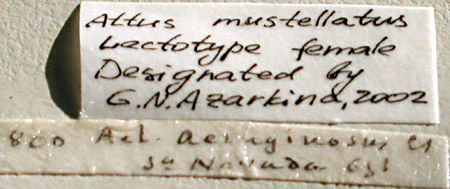 Attus mustellatus
Lectotype female
Designated by
G.N.Azarkina, 2002
800 Ael. aeruginosus Cs
Sa Nevada Esl